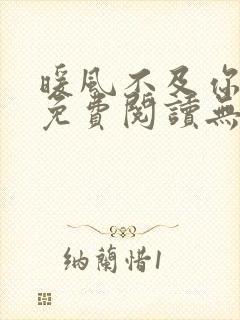 暖風不及你
免費閱讀無
納蘭惜1